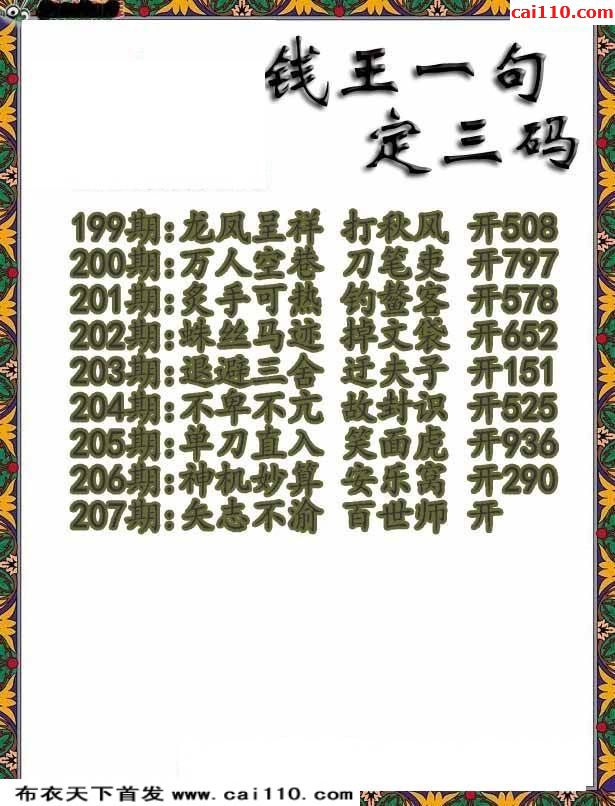 cai110.com
钱王一句
定三码
199期:龙凤呈祥 打秋风 开508
200期:万人空巷 刀笔吏 开797
201期:炙手可热 钓鳌客 开578
202期:蛛丝马迹 掉文袋 开652
203期:退避三舍 迂夫子 开151
204期:不卑不亢 故封识 开525
205期:单刀直入 笑面虎 开936
206期:神机妙算 安乐窝 开290
207期:矢志不渝 百世师 开
布衣天下首发 www.cai110.com
www.cai110.com